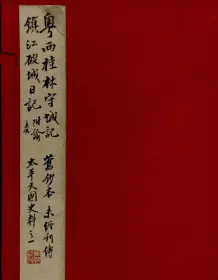 粵西桂林守城記
鎮江破城日記 附
舊鈔本 未經刊傳
太平天國史料之一